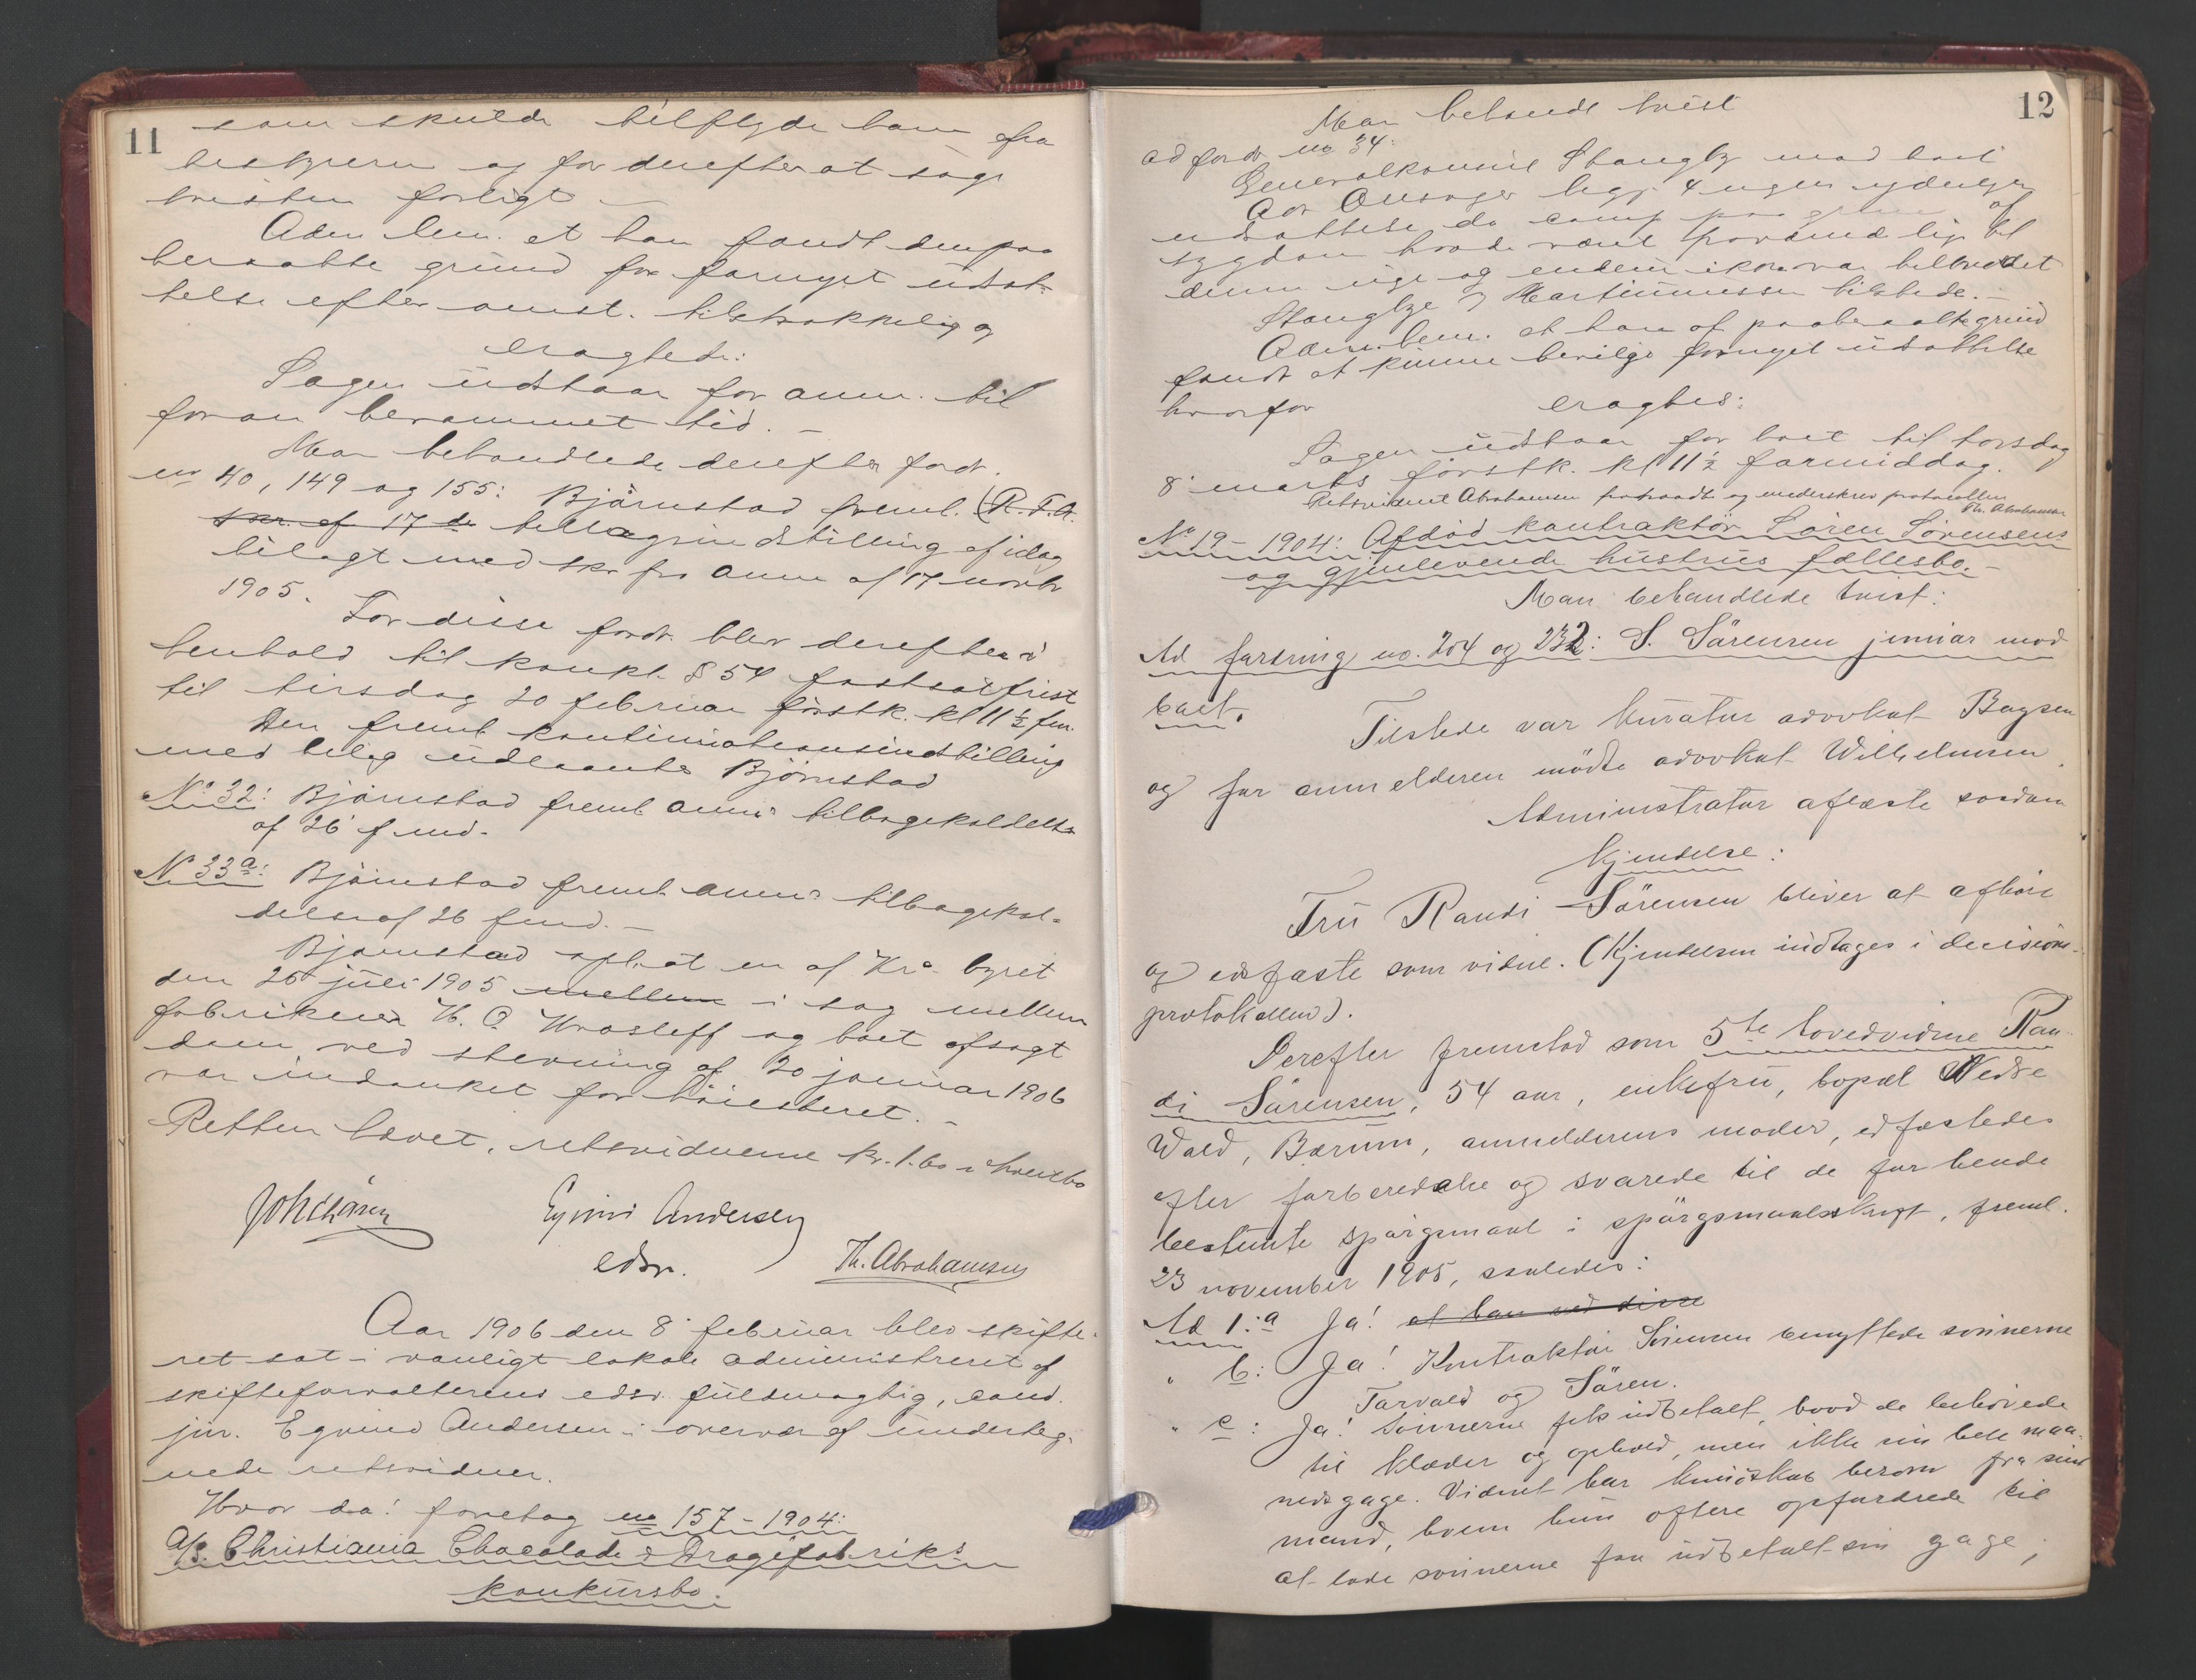 11
som skulde tilflyde ham fra
og for derefter at søge
tvisten forligt
Adm. bem. at han fandt den paa
beraabte grund for fornyet udsæt-
telse efter omst. tilstrækkelig og
eragtede:
Sagen udstaar for anm. til
foran berammet tid. –
Man behandlede derefter fordr.
no 40, 149 og 155: Bjørnstad freml. (R.T.A.
skr. af 17 de tillægsindstilling af idag
bilagt med skr fra anm af 17 novbr
1905.
For disse fordr. blev derefter i
henhold til konkl. § 54 fastsat frist
til tirsdag 20 februar førstk. kl 11 ½ fm.
Den freml kontinuationsindstilling
med bilag udlaantes Bjørnstad
No 32: Bjørnstad freml anm's tilbagekaldelse
af 26 f md.
No 33a: Bjørnstad freml anm's tilbagekal-
delse af 26 f md. –
Bjørnstad opl. at en af Kra byret
den 26 juli 1905 mellem i sag mellem
fabrikeier H. C. og boet afsagt
dom ved stevning af 20 januar 1906
var indanket for høiesteret. –
Retten hævet, retsvidnerne kr. 1.60 i hvert bo
Eyvind Andersen
edsv.
Th. Abrahamsen
Aar 1906 den 8' februar blev skifte-
ret sat i vanligt lokale administreret af
skifteforvalterens edsv. fuldmægtig, cand.
jur. Eyvind Andersen i overvær af underteg-
nede retsvidner.
Hvor da! foretog no 157 – 1904:
A/S. Christiania Chocolade & Dragéfabriks
konkursbo.
12
Man behandl tvist
ad fordr no 34:
Generalkonsul Stanglye mod boet
Adv begj. 4 ugers yderligere
udsættelse da comp paa grund af
sygdom havde været til
denne uge og endnu ikke var helbredet
Stanglye & Martinussen tilstede. –
Adm. bem. at han af paaberaabte grund
fandt at kunne bevilge fornyet udsættelse
hvorfor eragtes:
Sagen udstaar for boet til torsdag
8' marts førstk. kl 11 ½ formiddag.
Retsvidnet Abrahamsen fratraadte og underskrev protocollen
Th. Abrahamsen
No 19 – 1904: Afdød kontraktør Søren Sørensens
og gjenlevende hustrus fællesbo. –
Man behandlede tvist:
Ad fordring no. 204 og 232: S. Sørensen junior mod
boet.
Tilstede var kurator advokat Bøgsen
og for anmelderen mødte advokat Wilhelmsen.
Administrator aflæste saadan
Kjendelse:
Fru Randi Sørensen bliver at afhøre
og edfæste som vidne. (Kjendelsen indtages i decisions-
protokollen).
Derefter fremstod som 5te hovedvidne Ran-
di Sørensen, 54 aar, enkefru, bopæl Nedre
Wold, Bærum, anmelderens moder, edfæstedes
efter forberedelse og svarede til de for hende
bestemte spørgsmaal i spørgsmaalsskrift, freml.
23 november 1905, saaledes:
Ad 1: a Ja! at han ved disse
" b: Ja! Kontraktør Sørensen benyttede sønnerne
Torvald og Søren.
" c: Ja! Sønnerne fik udbetalt, hvad de behøvede
til klæder og ophold, men ikke sin hele maa-
nedsgage. Vidnet har kundskab herom fra sin
mand, hvem hun oftere opfordrede til
at lade sønnerne faa udbetalt sin gage;